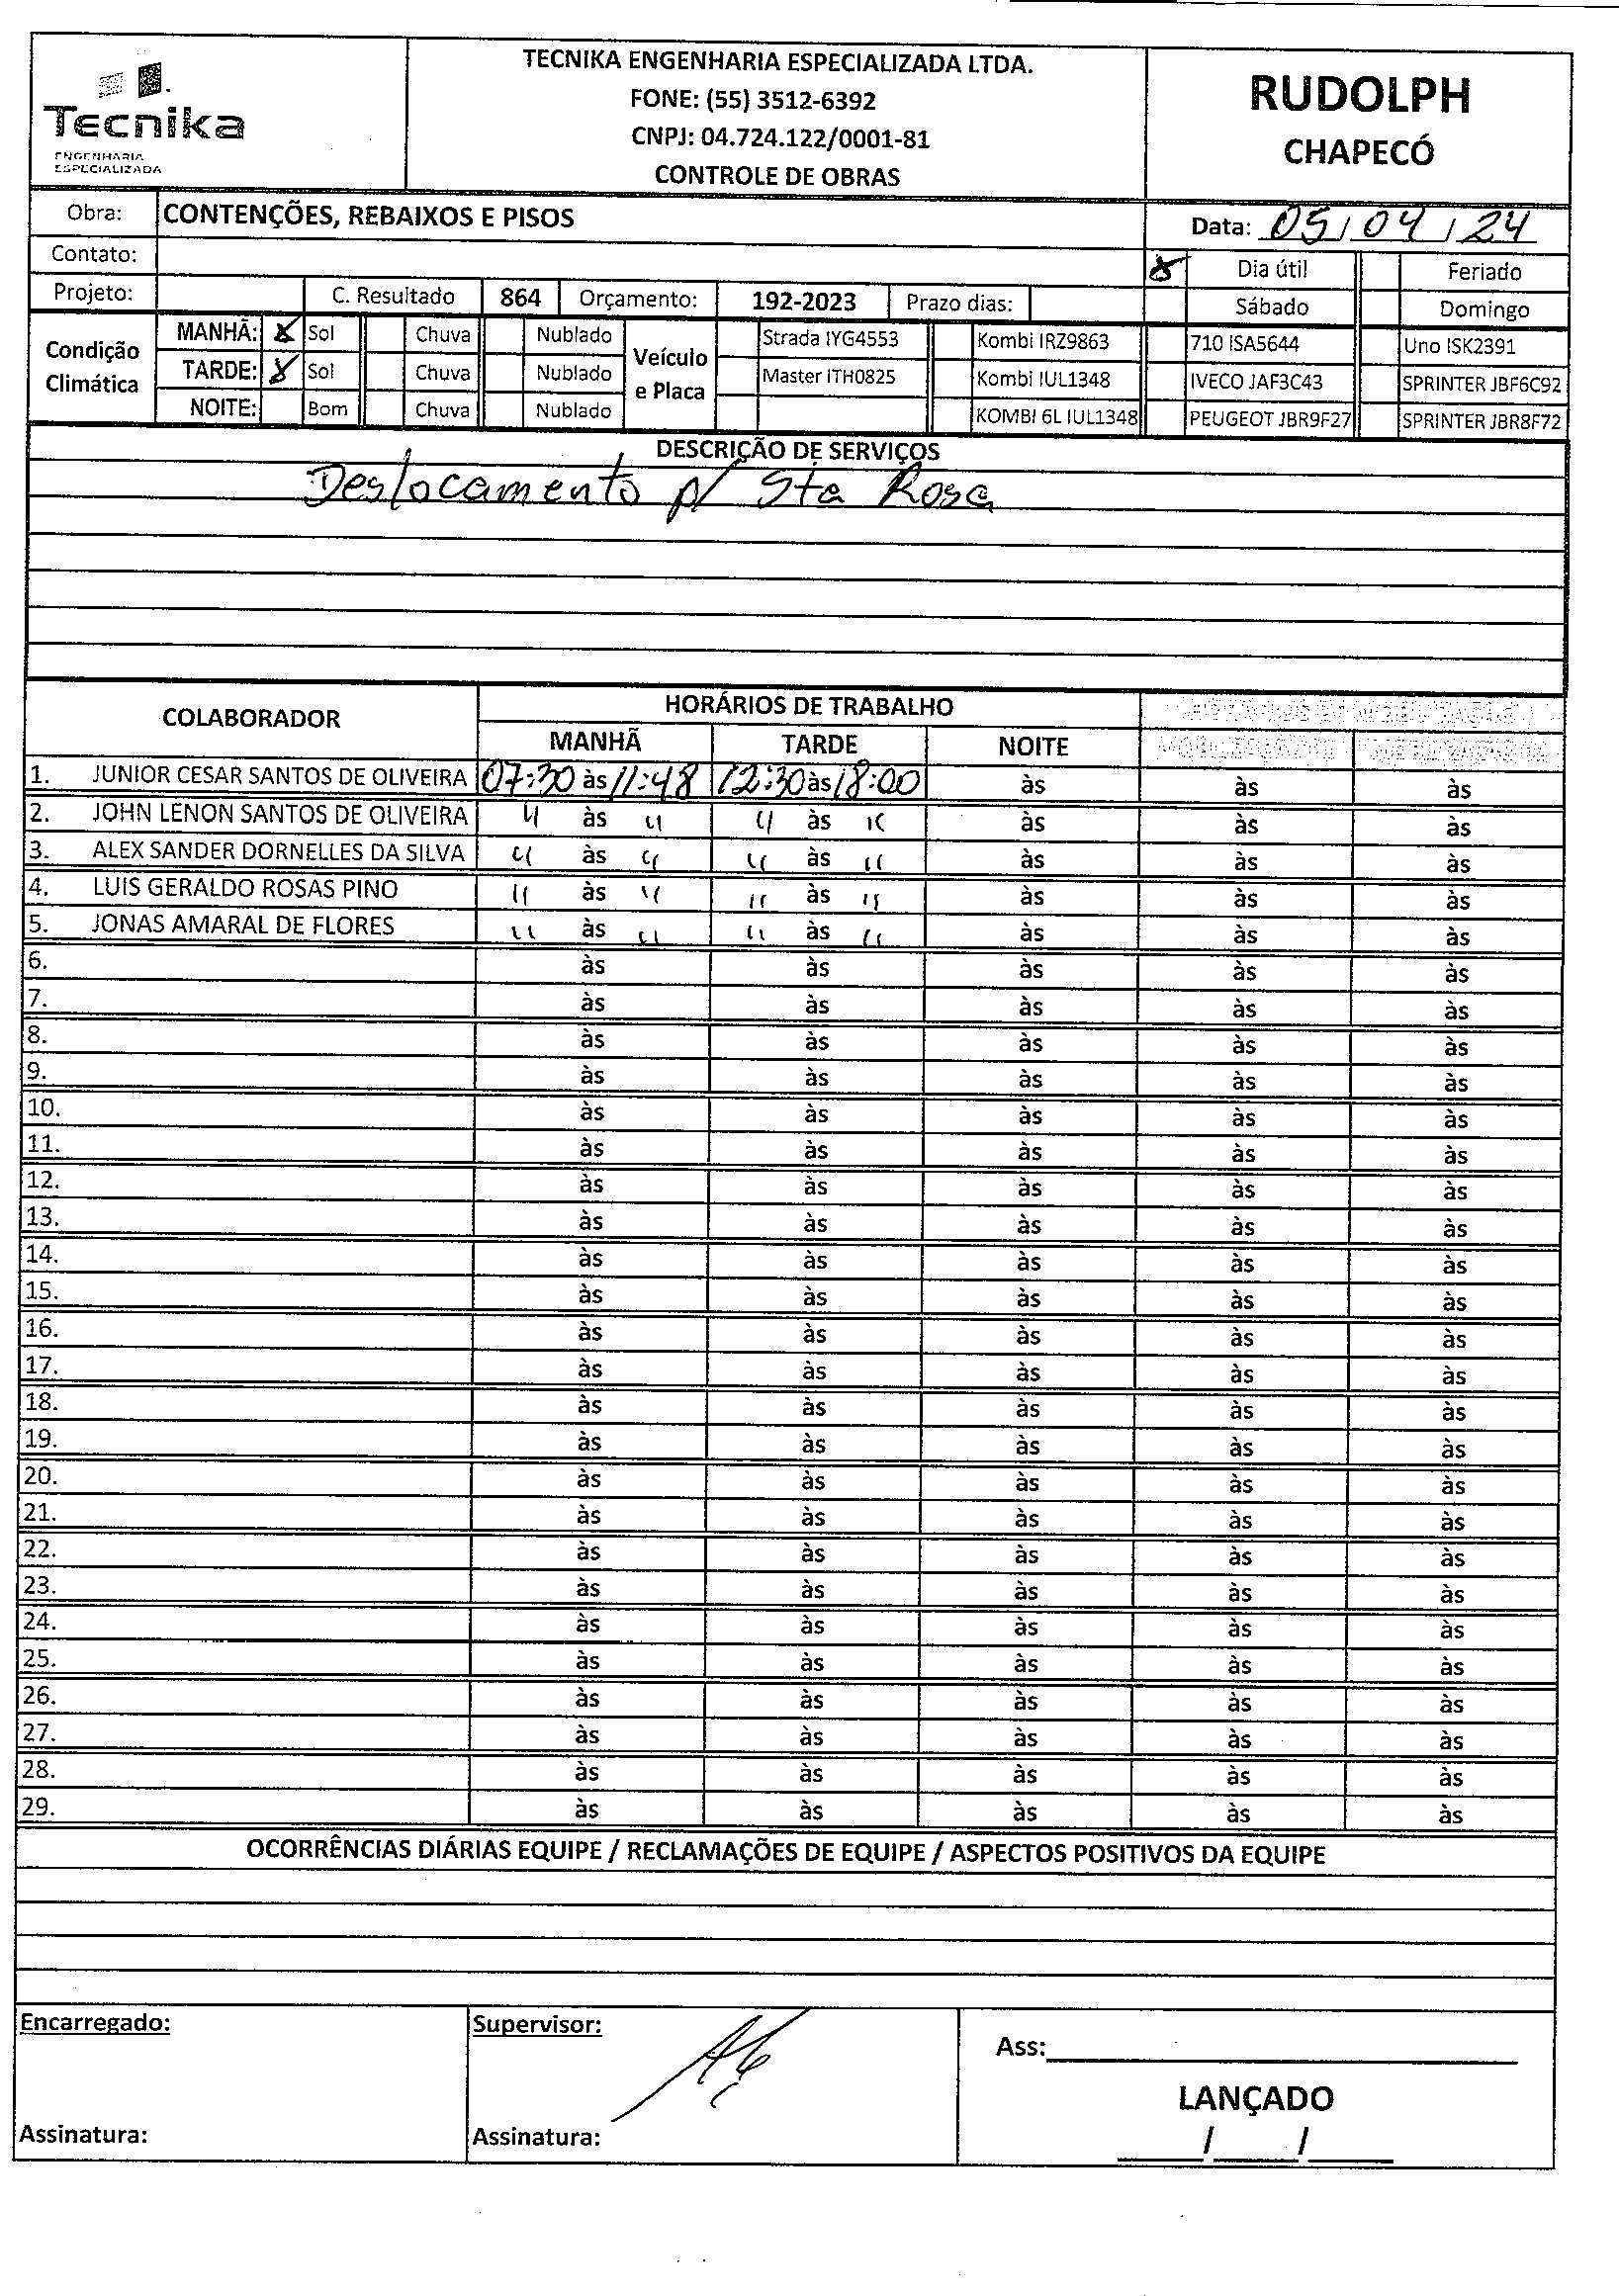 Tecnika
ENGENHARIA
ESPECIALIZADA
TECNIKA ENGENHARIA ESPECIALIZADA LTDA.
FONE: (55) 3512-6392
CNPJ: 04.724.122/0001-81
CONTROLE DE OBRAS
RUDOLPH
CHAPECÓ
Obra: CONTENÇÕES, REBAIXOS E PISOS
Data: 05/04/24
Contato:
X Dia útil Feriado
Projeto: C. Resultado 864 Orçamento: 192-2023 Prazo dias:
Sábado Domingo
Condição Climática
MANHÃ: X Sol Chuva Nublado
TARDE: X Sol Chuva Nublado
NOITE: Bom Chuva Nublado
Veículo e Placa
Strada IYG4553 Kombi IRZ9863 710 ISA5644 Uno ISK2391
Master ITH0825 Kombi IUL1348 IVECO JAF3C43 SPRINTER JBF6C92
KOMBI 6L IUL1348 PEUGEOT JBR9F27 SPRINTER JBR8F72
DESCRIÇÃO DE SERVIÇOS
Deslocamento p/ Sta Rosa
COLABORADOR HORÁRIOS DE TRABALHO
MANHÃ TARDE NOITE
1. JUNIOR CESAR SANTOS DE OLIVEIRA 07:30 às 11:48 12:30 às 18:00 às às às
2. JOHN LENON SANTOS DE OLIVEIRA " às " " às " às às às
3. ALEX SANDER DORNELLES DA SILVA " às " " às " às às às
4. LUIS GERALDO ROSAS PINO " às " " às " às às às
5. JONAS AMARAL DE FLORES " às " " às " às às às
6. às às às às às
7. às às às às às
8. às às às às às
9. às às às às às
10. às às às às às
11. às às às às às
12. às às às às às
13. às às às às às
14. às às às às às
15. às às às às às
16. às às às às às
17. às às às às às
18. às às às às às
19. às às às às às
20. às às às às às
21. às às às às às
22. às às às às às
23. às às às às às
24. às às às às às
25. às às às às às
26. às às às às às
27. às às às às às
28. às às às às às
29. às às às às às
OCORRÊNCIAS DIÁRIAS EQUIPE / RECLAMAÇÕES DE EQUIPE / ASPECTOS POSITIVOS DA EQUIPE
Encarregado:
Assinatura:
Supervisor:
Assinatura:
Ass:
LANÇADO
/ /